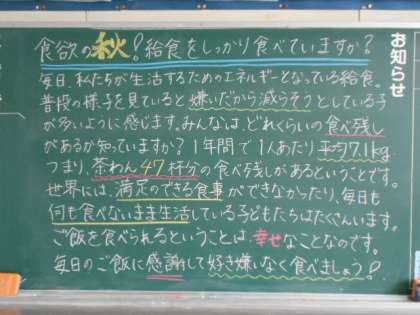 お知らせ
食欲の秋!給食をしっかり食べていますか?
毎日、私たちが生活するためのエネルギーとなっている給食。
普段の様子を見ていると嫌いだから減らそうとしている子
が多いように感じます。みんなは、どれくらいの食べ残し
があるか知っていますか?1年間で1人あたり平均7.1kg
つまり、茶わん47杯分の食べ残しがあるということです。
世界には、満足のできる食事ができなかったり、毎日も
何も食べないまま生活している子どもたちはたくさんいます。
ご飯を食べられるということは、幸せなことなのです。
毎日のご飯に感謝して好き嫌いなく食べましょう!